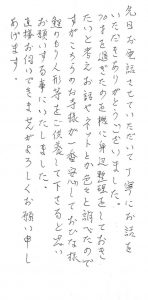 先日お電話させていただいて丁寧にお話を
いただきありがとうございました。
70才を過ぎその過機に身辺整理をしておき
たいと考えお話やネットとか色々と調べたので
すがこちらのお寺様が一番安心しておひな様
飾りもの人形等をご供養して下さると思い
お願いする事にいたしました。
直接お伺いできませんがよろしくお願い申し
あげます。